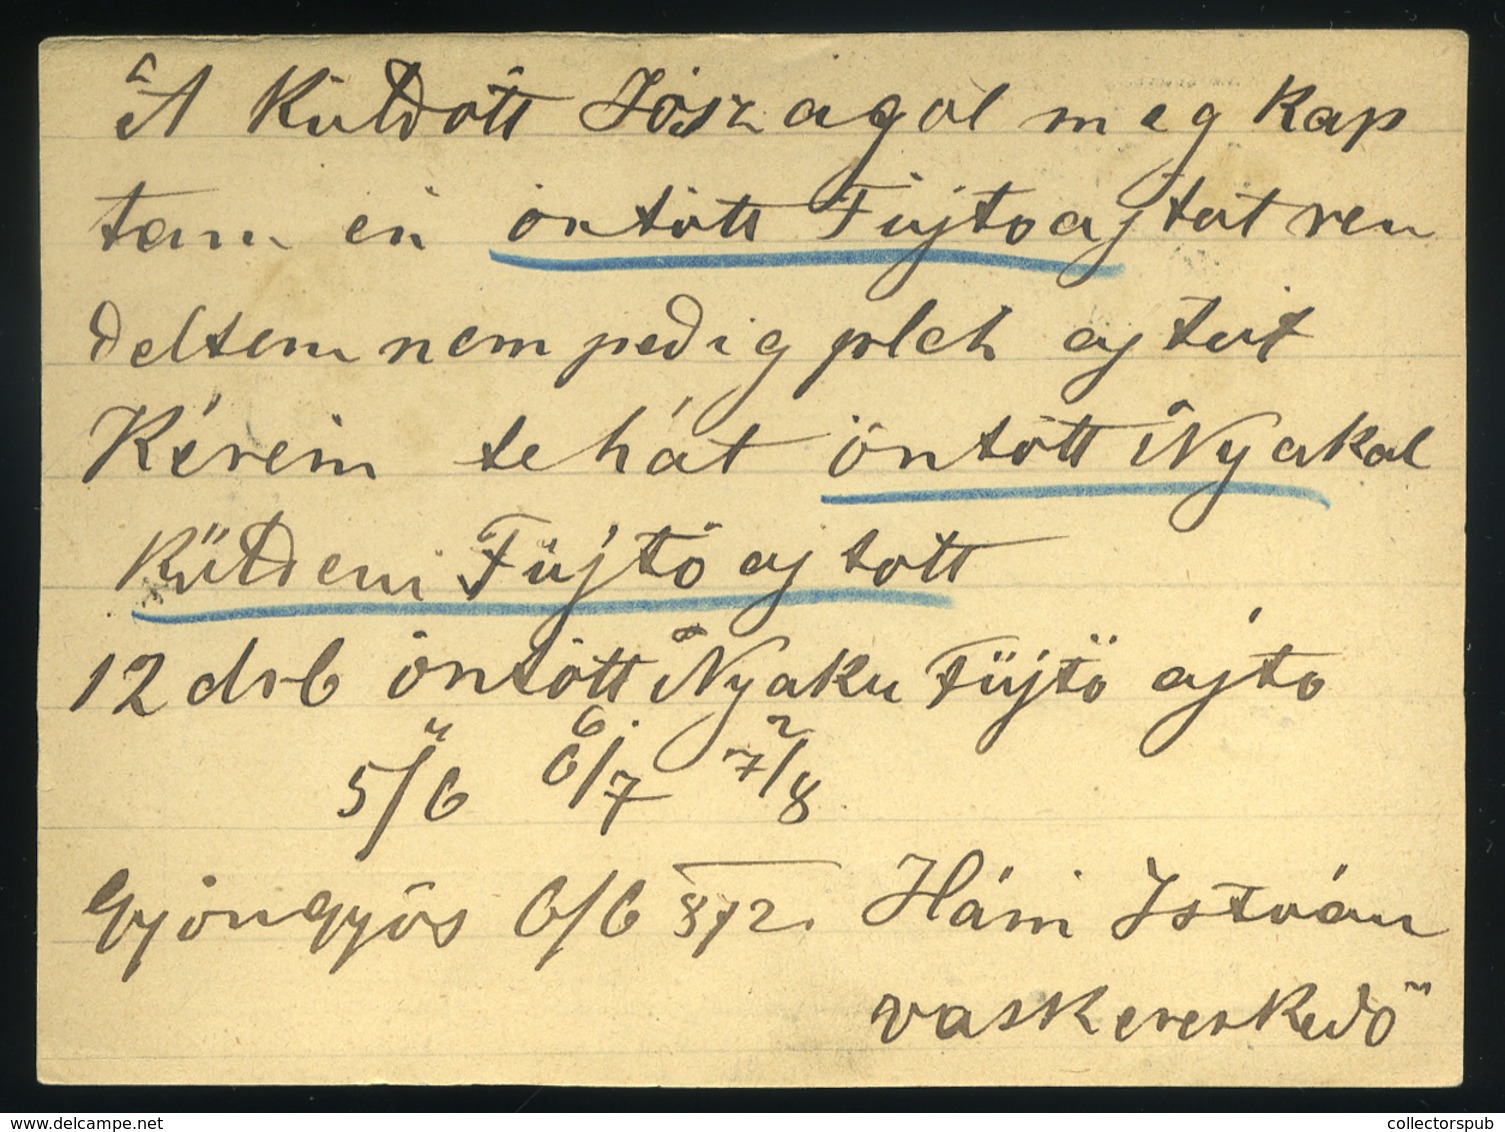 A Küldött Jószágol meg kap
tam én öntött Fűjtoajtot ren
deltem nem pedig pleh ajtót
Kérém tehát öntött Nyakal
Küldeni Fűjtö ajtott
12 drb öntött Nyaku Fűjtö ajto
5/6 6/7 7/8
Gyöngyös 6/6 872. Hámi István
vaskereskedő
collectorspub